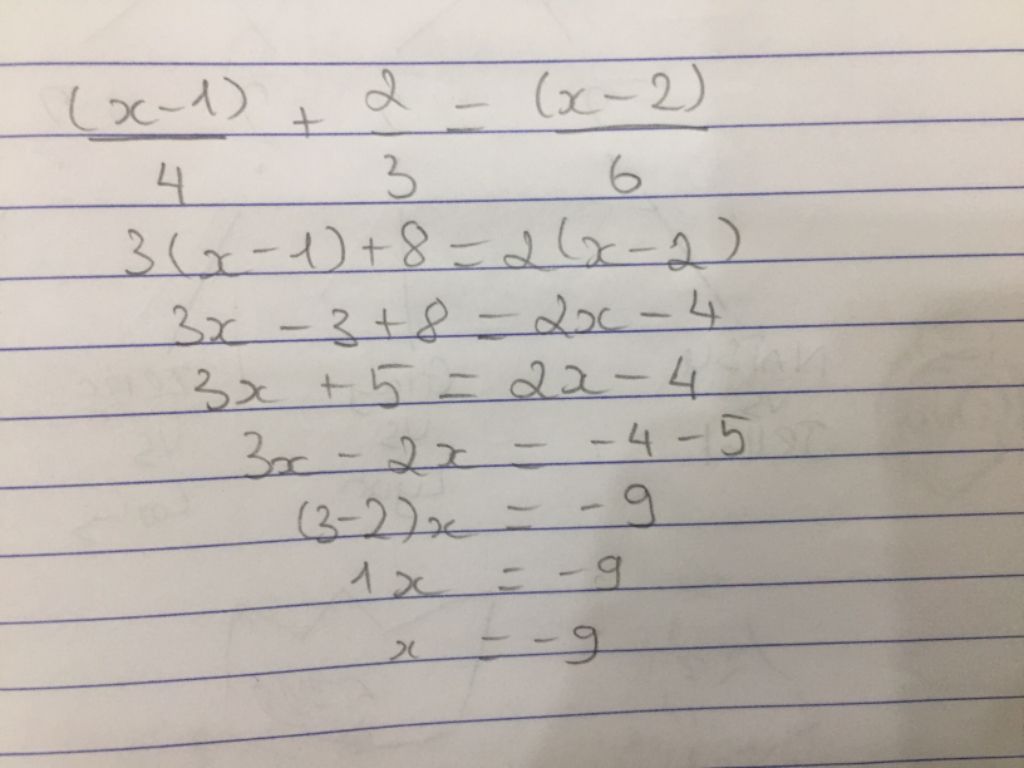 (x-1)/4 + 2/3 = (x-2)/6
3(x-1)+8=2(x-2)
3x-3+8=2x-4
3x+5=2x-4
3x-2x=-4-5
(3-2)x=-9
1x=-9
x=-9